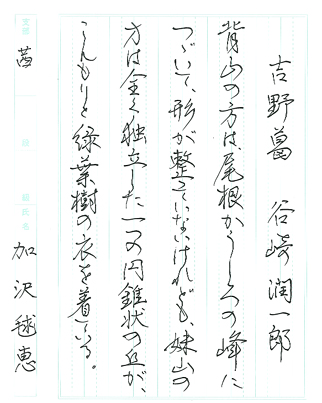 吉野葛　谷崎潤一郎
背山の方は、尾根がうしろの峰に
つゞいて、形が整つていないけれども、妹山の
方は全く独立した一つの円錐状の丘が、
こんもりと緑葉樹の衣を着ている。
茜　加沢毬恵